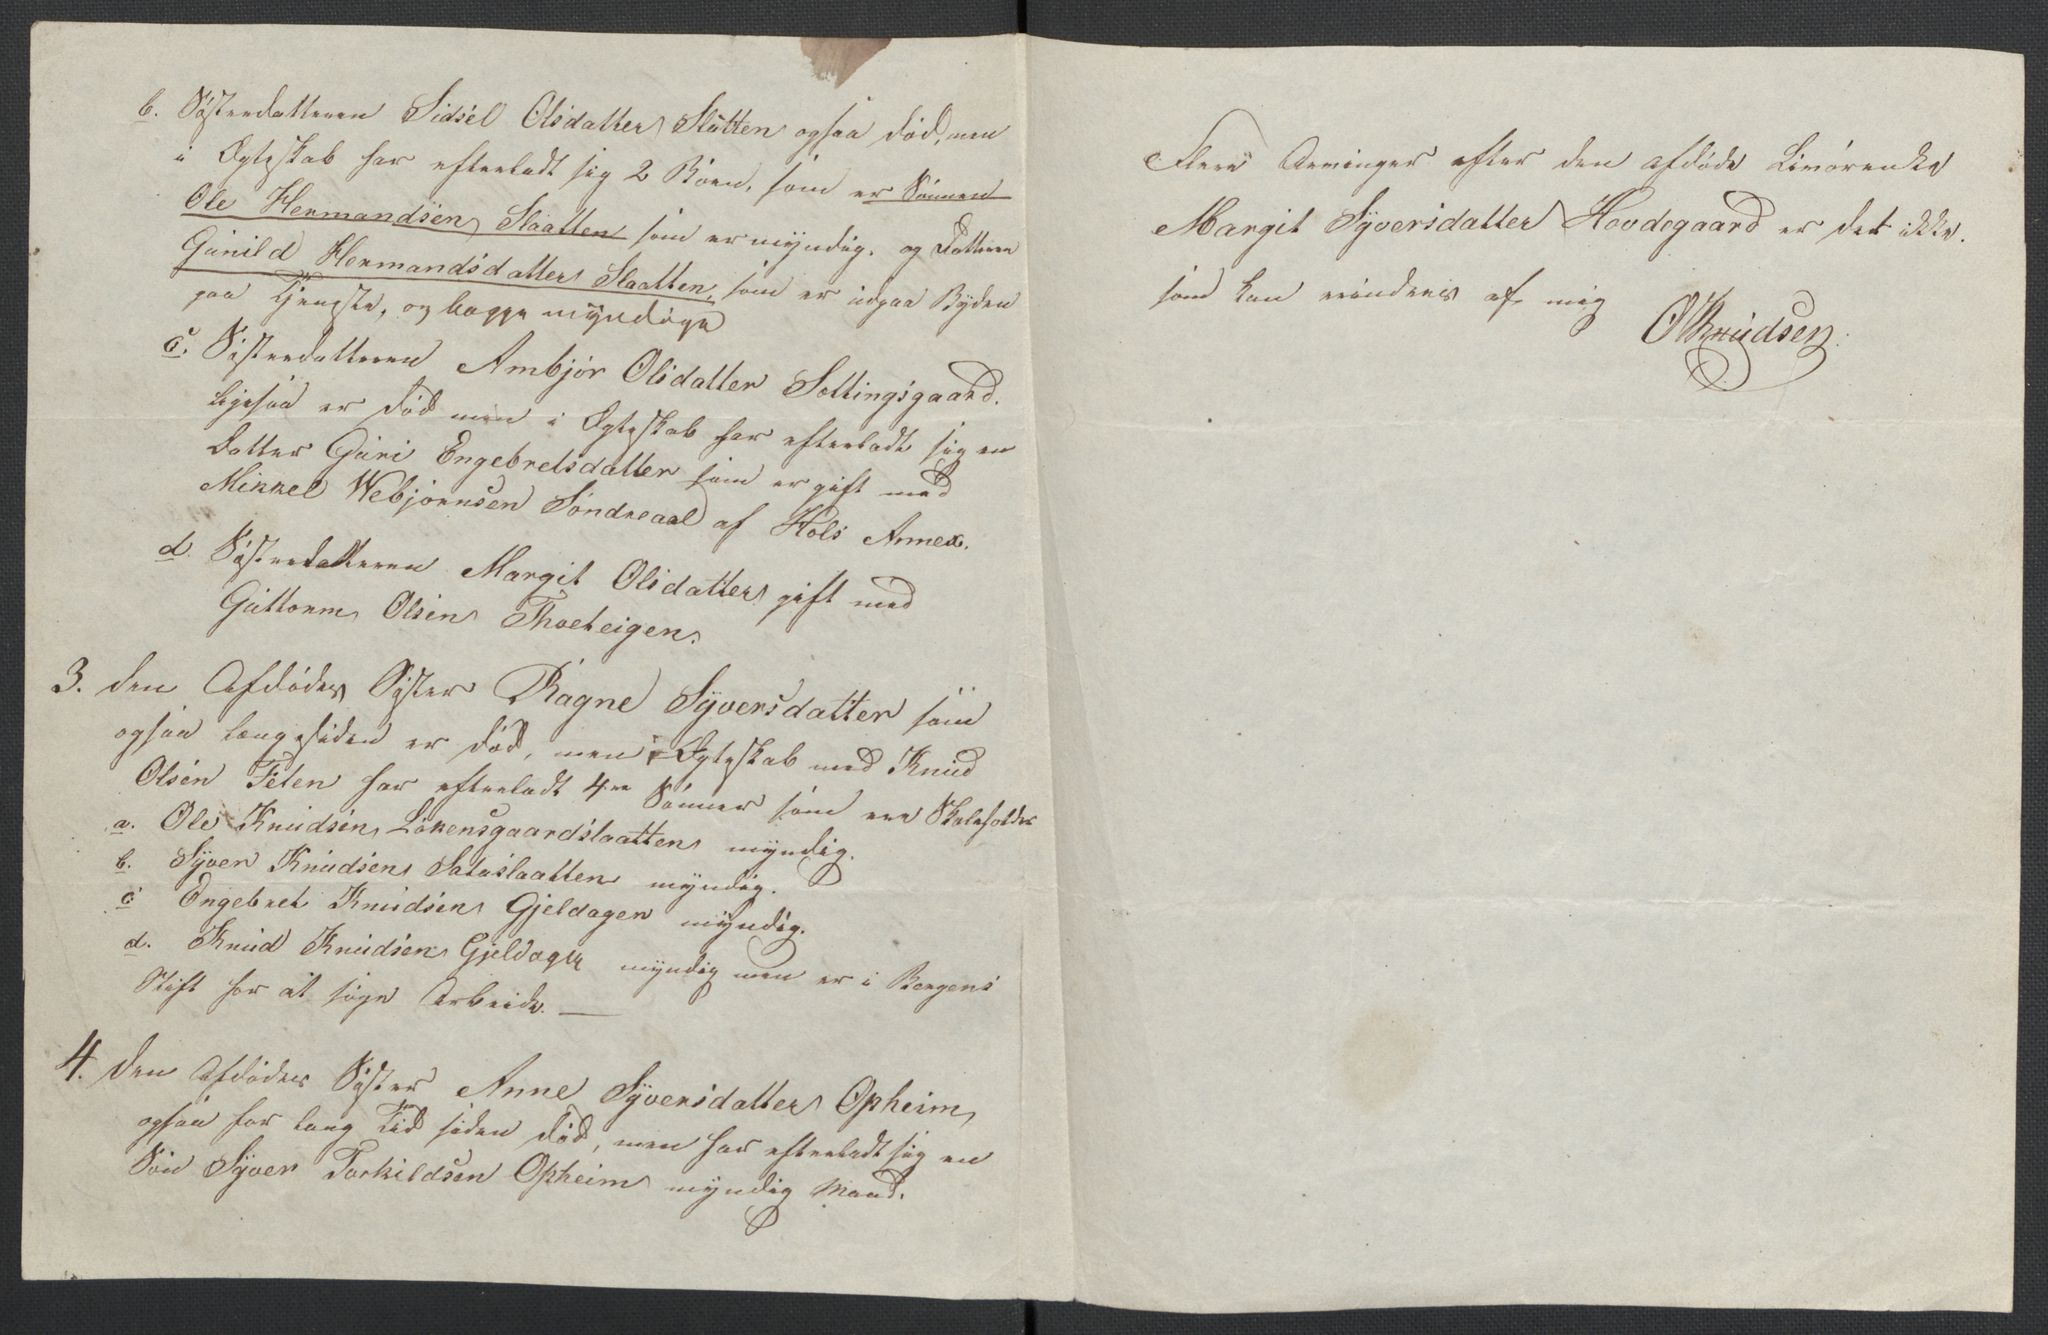 b. Søsterdatteren Sidsel Olsdatter Slåtten ogsaa død, men
i Ægteskab har efterladt sig 2 Børn, som er Sønnen
Ole Hermandsen Slaatten som er myndig. og Datteren
Gunild Hermandsdatter Slaatten, som er udpaa Byden
paa Tjeneste, og begge myndige
c. Søsterdatteren Ambjør Olsdatter Sottingsgaard.
ligesaa er død men i Ægteskab har efterladt sig en
Datter Guri Engebretsdatter som er gift med
Mikkel Webjørnsen Søndreaal af Hols Annex.
d. Søsterdatteren Margit Olsdatter gift med
Guttorm Olsen Thoeteigen.
3. den Afdødes Søster Ragne Syversdatter som
ogsaa længesiden er død, men i Ægteskab med Knud
Olsen Feten har efterladt 4re Sønner som ere Skoleholder
a. Ole Knudsen Løkensgaardslaatten myndig.
b. Syver Knudsen Sataslaatten myndig.
c Engebret Knudsen Gjeldagen myndig.
d. Knud Knudsen Gjeldagen myndig men er i Bergens
Stift for at søge Arbeide.
4. den Afdødes Søster Anne Syversdatter Opheim
ogsaa for lang Tid siden død, men har efterladt sig en
Søn Syver Torkildsen Opheim myndig Mand.
Flere Arvinger efter den afdøde Livørenke
Margit Syversdatter Hovdegaard er det ikke.
som kan erindres af mig
O Knudsen